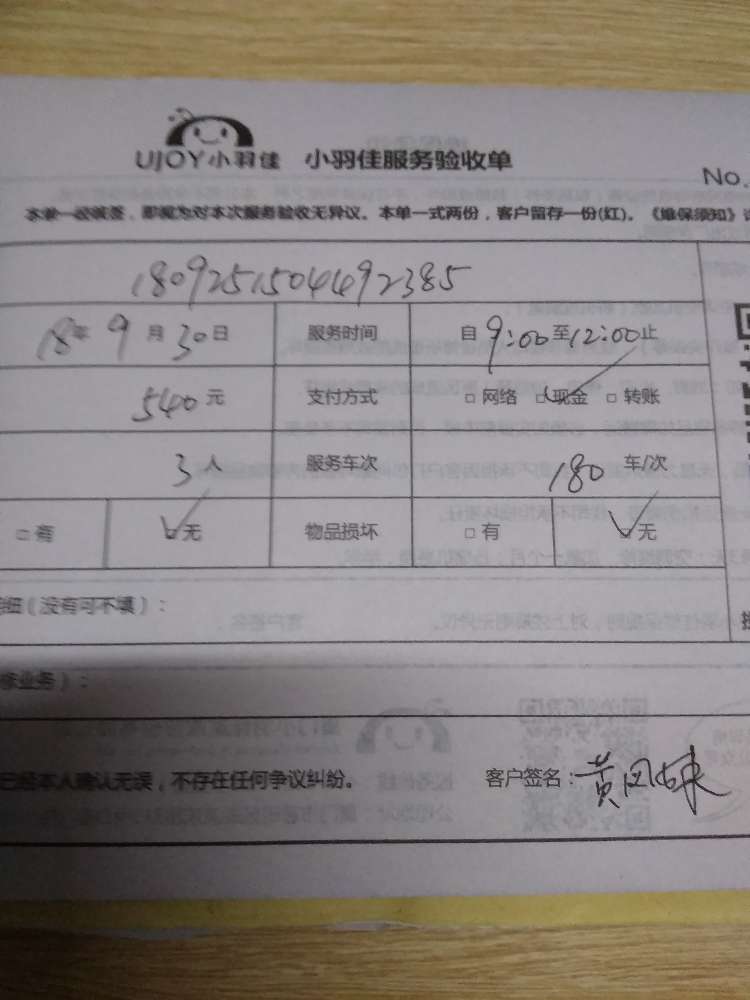 UJOY小羽佳 小羽佳服务验收单
No.
本单一经签署，即视为对本次服务验收无异议。本单一式两份，客户留存一份(红)。《维保须知》
1809251504492385
18年9月30日 服务时间 自9:00至12:00止
540元 支付方式 □网络 ☑现金 □转账
3人 服务车次 180车/次
□有 ☑无 物品损坏 □有 ☑无
细（没有可不填）：
修业务）：
已经本人确认无误，不存在任何争议纠纷。 客户签名：黄凤妹